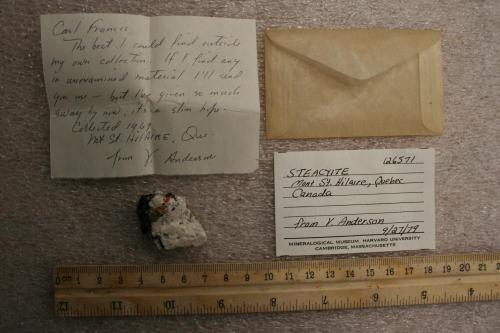 Carl Francis,
The best I could find outside
my own collection. If I find any
in unexamined material I'll send
you one – but I've given so much
away by now, it's a slim hope.
Collected 1969
Mt St. HILAIRE, Que.
from V. Anderson
126571
STEACYITE
Mont St. Hilaire, Quebec
Canada
from V. Anderson
9/27/79
MINERALOGICAL MUSEUM, HARVARD UNIVERSITY
CAMBRIDGE, MASSACHUSETTS
1 2 3 4 5 6 7 8 9 10 11 12 13 14 15 16 17 18 19 20 21
12 11 10 9 8 7 6 5 4